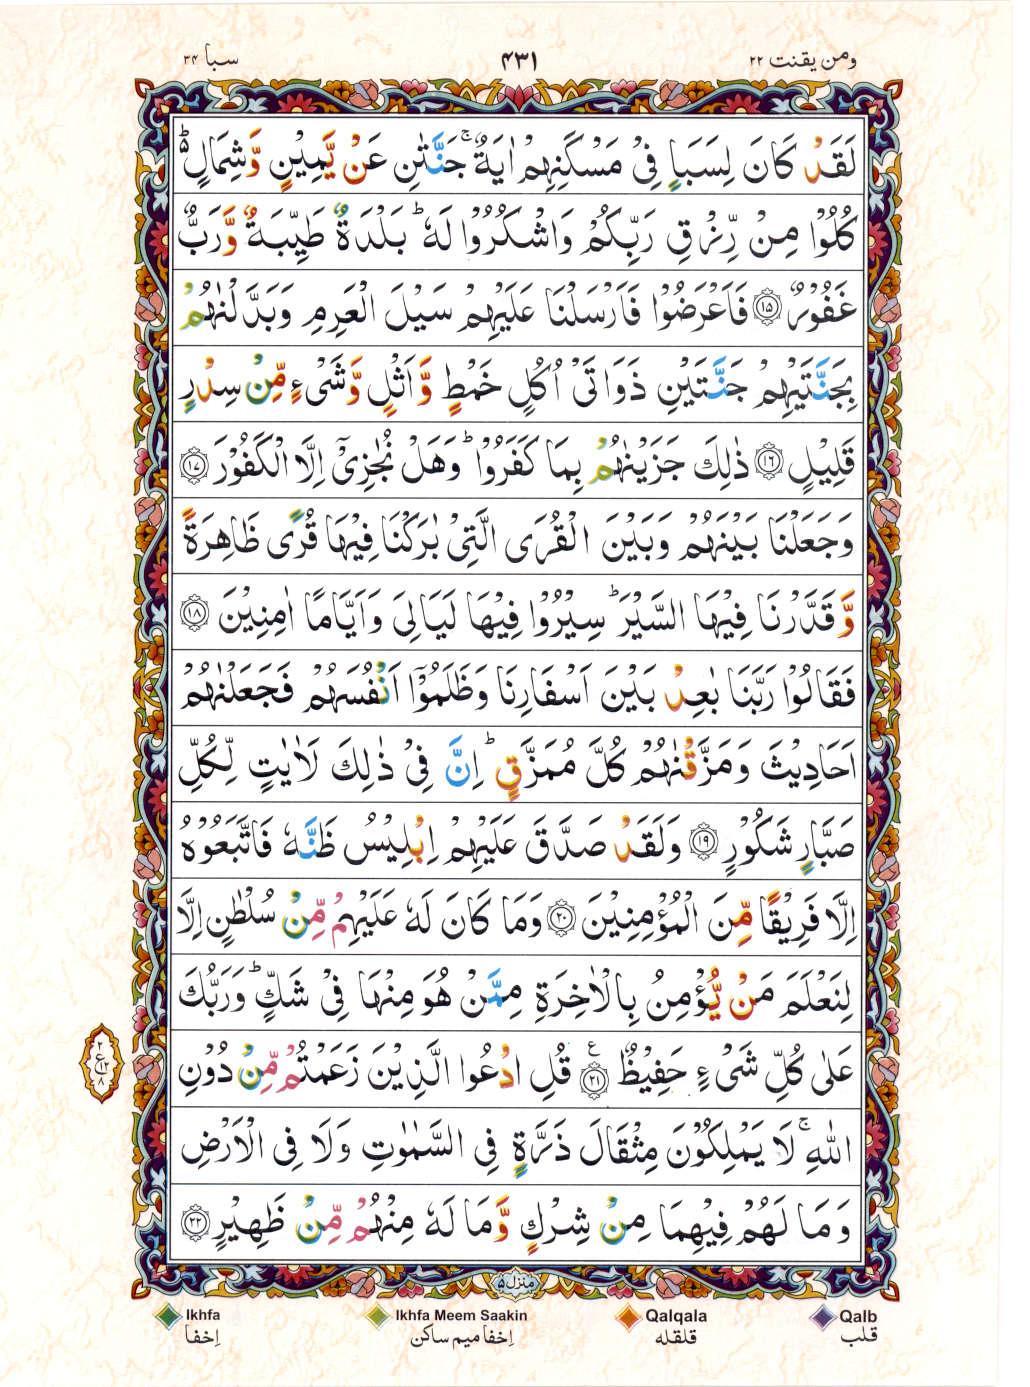 ومن یقنت ۲۲
۴۳۱
سبا ۳۴
لَقَدْ كَانَ لِسَبَاٍ فِیْ مَسْكَنِهِمْ اٰیَةٌ ۚ جَنَّتٰنِ عَنْ یَّمِیْنٍ وَّشِمَالٍ ؕ۬
كُلُوْا مِنْ رِّزْقِ رَبِّكُمْ وَاشْكُرُوْا لَهٗ ؕ بَلْدَةٌ طَیِّبَةٌ وَّرَبٌّ
غَفُوْرٌ ﴿۱۵﴾ فَاَعْرَضُوْا فَاَرْسَلْنَا عَلَیْهِمْ سَیْلَ الْعَرِمِ وَبَدَّلْنٰهُمْ
بِجَنَّتَیْهِمْ جَنَّتَیْنِ ذَوَاتَیْ اُكُلٍ خَمْطٍ وَّاَثْلٍ وَّشَیْءٍ مِّنْ سِدْرٍ
قَلِیْلٍ ﴿۱۶﴾ ذٰلِكَ جَزَیْنٰهُمْ بِمَا كَفَرُوْا ؕ وَهَلْ نُجٰزِیْۤ اِلَّا الْكَفُوْرَ ﴿۱۷﴾
وَجَعَلْنَا بَیْنَهُمْ وَبَیْنَ الْقُرَی الَّتِیْ بٰرَكْنَا فِیْهَا قُرًی ظَاهِرَةً
وَّقَدَّرْنَا فِیْهَا السَّیْرَ ؕ سِیْرُوْا فِیْهَا لَیَالِیَ وَاَیَّامًا اٰمِنِیْنَ ﴿۱۸﴾
فَقَالُوْا رَبَّنَا بٰعِدْ بَیْنَ اَسْفَارِنَا وَظَلَمُوْۤا اَنْفُسَهُمْ فَجَعَلْنٰهُمْ
اَحَادِیْثَ وَمَزَّقْنٰهُمْ كُلَّ مُمَزَّقٍ ؕ اِنَّ فِیْ ذٰلِكَ لَاٰیٰتٍ لِّكُلِّ
صَبَّارٍ شَكُوْرٍ ﴿۱۹﴾ وَلَقَدْ صَدَّقَ عَلَیْهِمْ اِبْلِیْسُ ظَنَّهٗ فَاتَّبَعُوْهُ
اِلَّا فَرِیْقًا مِّنَ الْمُؤْمِنِیْنَ ﴿۲۰﴾ وَمَا كَانَ لَهٗ عَلَیْهِمْ مِّنْ سُلْطٰنٍ اِلَّا
لِنَعْلَمَ مَنْ یُّؤْمِنُ بِالْاٰخِرَةِ مِمَّنْ هُوَ مِنْهَا فِیْ شَكٍّ ؕ وَرَبُّكَ
عَلٰی كُلِّ شَیْءٍ حَفِیْظٌ ﴿۲۱﴾ ع قُلِ ادْعُوا الَّذِیْنَ زَعَمْتُمْ مِّنْ دُوْنِ
اللّٰهِ ۚ لَا یَمْلِكُوْنَ مِثْقَالَ ذَرَّةٍ فِی السَّمٰوٰتِ وَلَا فِی الْاَرْضِ
وَمَا لَهُمْ فِیْهِمَا مِنْ شِرْكٍ وَّمَا لَهٗ مِنْهُمْ مِّنْ ظَهِیْرٍ ﴿۲۲﴾
۲
ع۱۲
۸
منزل ۵
Ikhfa
Ikhfa Meem Saakin
Qalqala
Qalb
اِخفا
اِخفا میم ساکن
قلقله
قلب